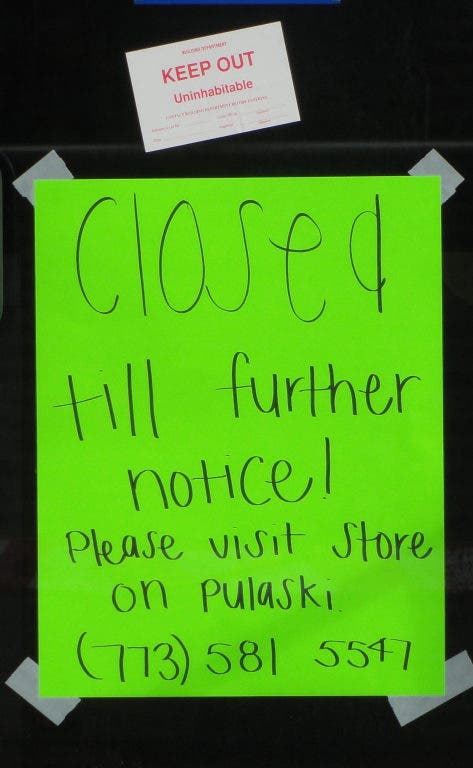 BUILDING DEPARTMENT
KEEP OUT
Uninhabitable
Closed
till further
notice!
Please visit store
on pulaski.
(773) 581 5547